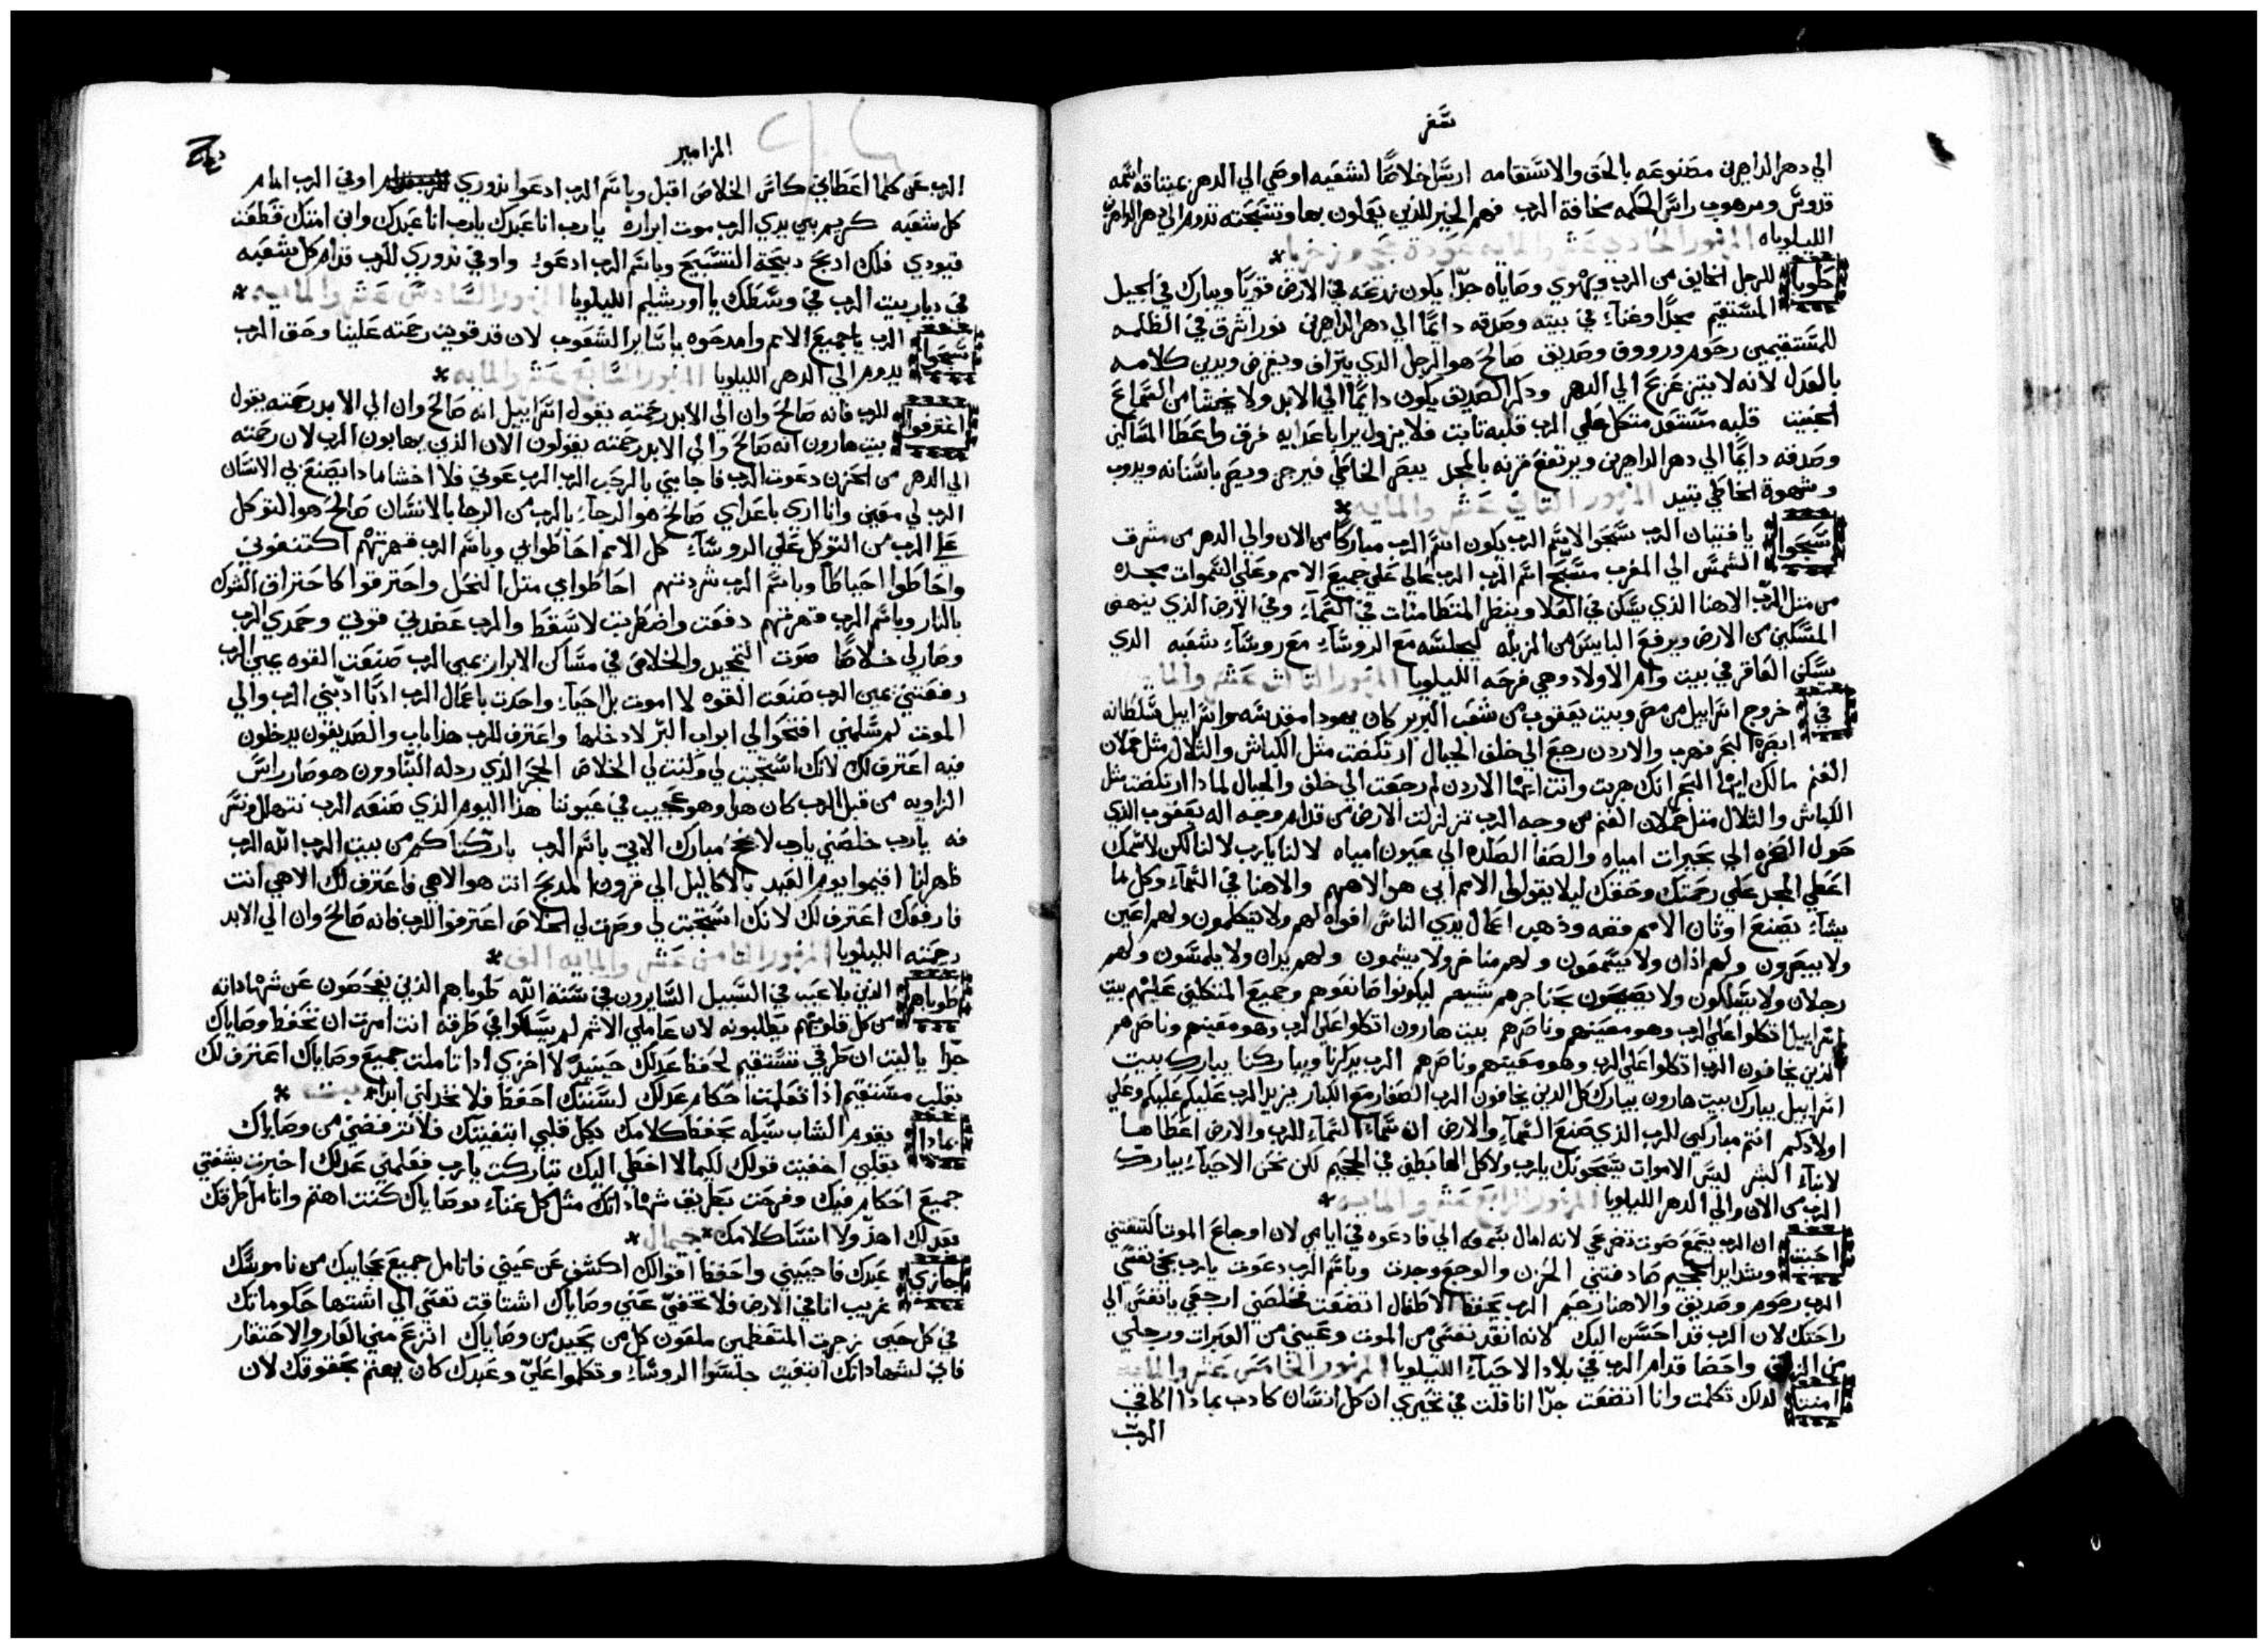 سفر
الي دهر الداهرين مصنوعه بالحق والاستقامه ارسل خلاصًا لشعبه اوصي الي الدهر عيتاقه اسمه
قدوس ومرهوب راس الحكمه مخافة الرب فهم الخير للذين يعملون بها وتسبحته تدوم الي دهر الداهرين
الليلوياه المزمور الحادي عشر والمايه عودة حجي وزخريا
طوبا للرجل الخايف من الرب ويهوي وصاياه جدًا يكون زرعه في الارض قويًا ويبارك في لجيل
المستقيم مجدًا وغناء في بيته وصدقه دايمًا الي دهر الداهرين نورا شرق في الظلمه
للمستقيمين رحوم ورووق وصديق صالح هو الرجل الذي يتراف ويقرض ويدبر كلامه
بالعدل لانه لا يتزعزع الي الدهر ودكر الصديق يكون دايمًا الي الابد ولا يخشا من السماع
الخبيت قلبه مستعد متكل علي الرب قلبه تابت فلا يزول يرا باعدايه فرق واعطا المساكين
وصدقه دايمًا الي دهر الداهرين ويرتفع قرنه بالمجد يبصر الخاطي فيرجز ويصر باسنانه ويدوب
وشهوة الخاطي تبيد المزمور التاني عشر والمايه
سبحوا يا فتيان الرب سبحوا لاسم الرب يكون اسم الرب مباركًا من الان والي الدهر من مشرق
الشمس الي المغرب مسبح اسم الرب الرب عالي علي جميع الامم وعلي السموات مجده
من متل الرب الاهنا الذي يسكن في العلا وينظر المتطامنات في السماء وفي الارض الذي ينهض
المسكين من الارض ويرفع البايس من المزبله ليجلسه مع الروساء مع روساء شعبه الدي
يسكن العاقر في بيت وام الاولاد وهي فرحه الليلويا المزمور التالت عشر والمايه
في خروج اسراييل من مصر وبيت يعقوب من شعب البربر كان يهودا مقدسه واسراييل سلطانه
ابصره البحر فهرب والاردن رجع الي خلف الجبال ارتكضت متل الكباش والتلال متل حملان
الغنم مالك ايها البحر انك هربت وانت ايها الاردن لم رجعت الي خلف والجبال لماذا ارتكضت متل
الكباش والتلال متل حملان الغنم من وجه الرب تزلزلت الارض من قدام وجه اله يعقوب الذي
حول الصخره الي بحيرات امياه والصفا الصلده الي عيون امياه لا لنا يا رب لا لنا لكن لاسمك
اعطي المجد علي رحمتك وحقك ليلا يقولوا الامم اين هو الاههم والاهنا في السماء وكل ما
يشاء يصنع اوتان الامم فضه وذهب اعمال يدي الناس افواه لهم ولا يتكلمون ولهم اعين
ولا يبصرون ولهم اذان ولا يسمعون ولهم مناخر ولا يشمون ولهم يدان ولا يلمسون ولهم
رجلان ولا يسلكون ولا يصيحون بحناجرهم تشبيهم ليكونوا صانعوهم وجميع المتكلين عليهم بيت
اسراييل اتكلوا علي الرب وهو معينهم وناصرهم بيت هارون اتكلوا علي الرب وهو معينهم وناصرهم
الذين يخافون الرب اتكلوا علي الرب وهو معينهم وناصرهم الرب يدكرنا ويباركنا يبارك بيت
اسراييل يبارك بيت هارون يبارك كل الدين يخافون الرب الصغار مع الكبار يزيد الرب عليكم عليكم وعلي
اولادكم انتم مباركين للرب الذي صنع السماء والارض ان سماء السماء للرب والارض اعطاها
لابناء البشر ليس الاموات يسبحونك يا رب ولا كل الهابطين في الجحيم لكن نحن الاحياء يبارك
الرب من الان والي الدهر الليلويا المزمور الرابع عشر والمايه
احببت ان الرب يسمع صوت تضرعي لانه امال سمعه الي فادعوه في ايامي لان اوجاع الموت اكتنفتني
وشدايد الجحيم صادفتني الحزن والوجع وجدت وباسم الرب دعوت يا رب نجي نفسي
الرب رحوم وصديق والاهنا رحيم الرب يحفظ الاطفال اتضعت فخلصني ارجعي يا نفسي الي
راحتك لان الرب قد احسن اليك لانه انقد نفسي من الموت وعيني من العبرات ورجلي
من الزلق واحضا قدام الرب في بلاد الاحياء الليلويا المزمور الخامس عشر والمايه
امنت لدلك تكلمت وانا اتضعت جدًا انا قلت في تحيري ان كل انسان كادب بماذا اكافي
الرب
المزامير
الرب عن كلما اعطاني كاس الخلاص اقبل وباسم الرب ادعوا نذوري اوفي الرب امام
كل شعبه كريم بين يدي الرب موت ابراره يا رب انا عبدك يا رب انا عبدك وابن امتك قطعت
قيودي فلك ادبح دبيحة التسبيح وباسم الرب ادعوا واوفي نذوري للرب قدام كل شعبه
في ديار بيت الرب في وسطك يا اورشليم الليلويا المزمور السادس عشر والمايه
سبحوا الرب يا جميع الامم وامدحوه يا ساير الشعوب لان قد قويت رحمته علينا وحق الرب
يدوم الي الدهر الليلويا المزمور السابع عشر والمايه
اعترفوا للرب فانه صالح وان الي الابد رحمته يقول اسراييل انه صالح وان الي الابد رحمته يقول
بيت هارون انه صالح والي الابد رحمته يقولون الان الذين يهابون الرب لان رحمته
الي الدهر من الحزن دعوت الرب فاجابني بالرحب الرب الرب عوني فلا اخشا مادا يصنع بي الانسان
الرب لي معين وانا اري باعداي صالح هو الرجاء بالرب من الرجا بالانسان صالح هو التوكل
علي الرب من التوكل علي الروساء كل الامم احاطوا بي وباسم الرب قهرتهم اكتنفوني
واحاطوا احياطًا وباسم الرب شردتهم احاطوا بي متل النحل واحترقوا كاحتراق الشوك
بالنار وباسم الرب قهرتهم دفعت واضطربت لاسقط والرب عضدني قوتي وحمدي الرب
وصار لي خلاصًا صوت التمجيد والخلاص في مساكن الابرار يمين الرب صنعت القوه يمين الرب
رفعتني يمين الرب صنعت القوه لا اموت بل احياء واحدت باعمال الرب ادبًا ادبني الرب والي
الموت لم يسلمني افتحوا لي ابواب البر لادخلها واعترف للرب هدا باب والصديقون يدخلون
فيه اعترف لك لانك استجبت لي وكنت لي الخلاص الحجر الذي ردله البناوون هو صار راس
الزاويه من قبل الرب كان هدا وهو عجيب في عيوننا هذا اليوم الذي صنعه الرب نتهلل ونسر
فه يا رب خلصني يا رب لانجح مبارك الاتي باسم الرب باركناكم من بيت الرب الله الرب
ظهر لنا اقيموا يوم العيد بالاكاليل الي قرون المدبح انت هو الاهي فاعترف لك الاهي انت
فارفعك اعترف لك لانك استجبت لي وصرت لي الخلاص اعترفوا للرب فانه صالح وان الي الابد
رحمته الليلويا المزمور التامن عشر والمايه الف
طوباهم الذين بلا عيب في السبيل السايرون في سنة الله طوباهم الذين يفحصون عن شهاداته
من كل قلوبهم يطلبونه لان عاملي الاثم لم يسلكوا في طرقه انت امرت ان تحفظ وصاياك
جدًا يا ليت ان طرقي تستقيم لحفظ عدلك حينيدًا لا اخزي ادا تاملت جميع وصاياك اعترف لك
بقلب مستقيم اذا تعلمت احكام عدلك لسننك احفظ فلا تخدلني ابدا بيت
بمادا يقوم الشاب سبيله بحفظ كلامك بكل قلبي ابتغيتك فلا ترفضني من وصاياك
بقلبي اخفيت قولك لكيما لا اخطي اليك تباركت يا رب فعلمني عدلك اخبرت بشفتي
جميع احكام فيك وفرحت بطريق شهاداتك متل كل غناء بوصاياك كنت اهتم واتامل طرقك
بعدلك اهذ ولا انسا كلامك جمال
جازي عبدك فاحييني واحفظ اقوالك اكشف عن عيني فاتامل جميع عجايبك من ناموسك
غريب انا في الارض فلا تخفي عني وصاياك اشتاقت نفسي الي اشتها حكوماتك
في كل حين زجرت المتعظمين ملعون كل من يحيد من وصاياك انزع مني العار والاحتقار
فاني لشهاداتك ابتغيت جلسوا الروساء وتكلموا علي وعبدك كان يهتم بحقوقك لان